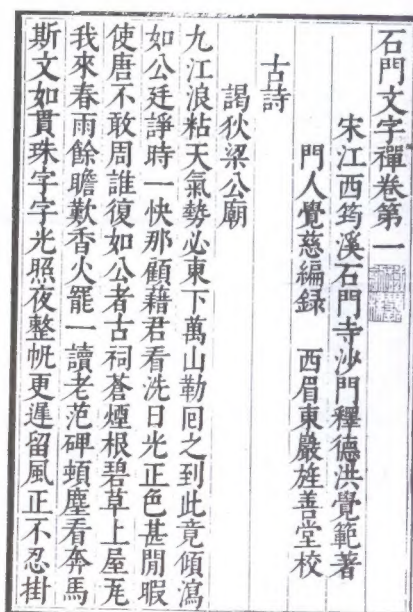 石門文字禪卷第一
宋江西筠溪石門寺沙門釋德洪覺範著
門人覺慈編録　西眉東巖旌善堂校
古詩
謁狄梁公廟
九江浪粘天氣勢必東下萬山勒回之到此竟傾瀉
如公廷諍時一快那顧藉君看洗日光正色甚閒暇
使唐不敢周誰復如公者古祠蒼煙根碧草上屋瓦
我來春雨餘瞻歎香火罷一讀老范碑頓塵看奔馬
斯文如貫珠字字光照夜整帆更遲留風正不忍掛